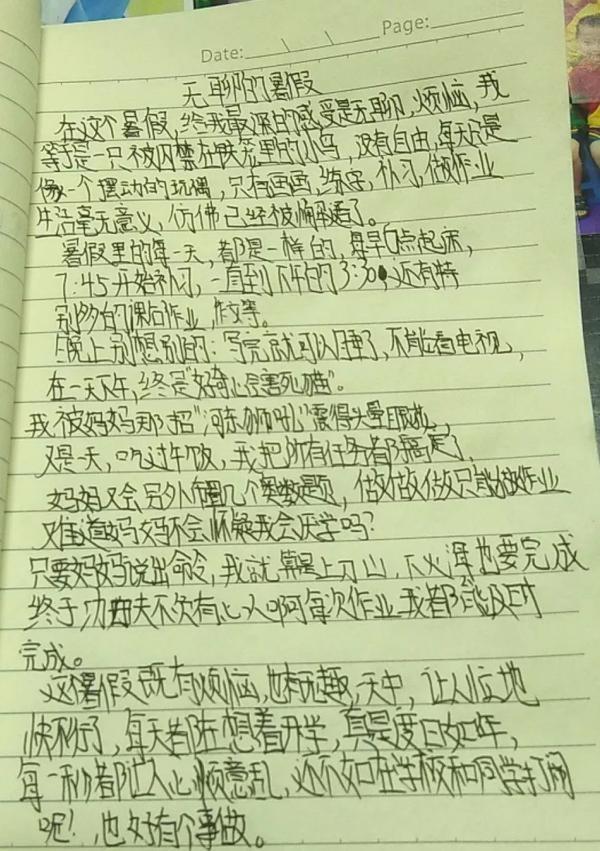 Date: Page:
无聊的暑假
在这个暑假,给我最深的感受是无聊,烦恼,我
等于是一只被囚禁在铁笼里的小鸟,没有自由,每天只是
像一个摆动的玩偶,只有画画,练字,补习,做作业
生活毫无意义,仿佛已经被解透了。
暑假里的每一天,都是一样的,每早6点起床,
7:45开始补习,一直到下午的3:30,还有特
别多的课后作业,作文等。
晚上别想别的:写完就可以睡了,不能看电视,
在一天下午,终是"好奇心害死猫"。
我被妈妈那招"河东狮吼"震得头晕目眩,
又是一天,吃过午饭,我把所有任务都搞定了,
妈妈又会另外布置几个奥数题,做做做只能做作业
难道妈妈不会怀疑我会厌学吗?
只要妈妈说出命令,我就算是上刀山,下火海也要完成
终于功夫不负有心人啊每次作业我都能及时
完成。
这个暑假既有烦恼,也有无趣,天中,让人位地
快不行了,每天都在想着开学,真是度日如年,
每一秒都让人心烦意乱,还不如在学校和同学打闹
呢!,也好有个事做。